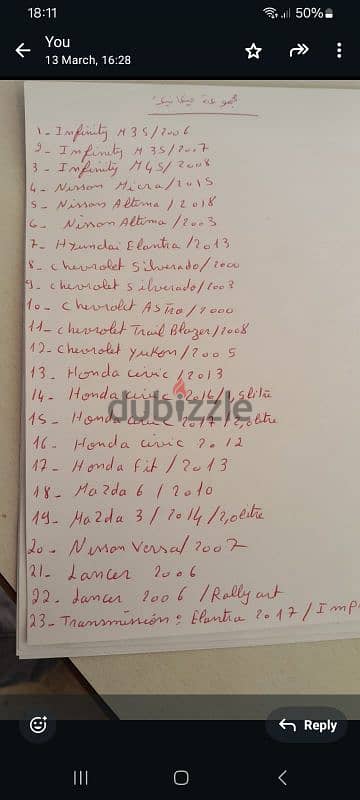 18:11
50%
You
13 March, 16:28
1- Infinity M35/2006
2- Infinity M35/2007
3- Infinity M45/2008
4- Nissan Micra/2015
5- Nissan Altima/2018
6- Nissan Altima/2003
7- Hyundai Elantra/2013
8- Chevrolet Silverado/2000
9- Chevrolet Silverado/2003
10- Chevrolet Astro/2000
11- Chevrolet Trail Blazer/2008
12- Chevrolet Yukon/2005
13- Honda civic/2013
14- Honda civic 2016/1,5litre
dubizzle
15- Honda civic 2017/2,0litre
16- Honda civic 2012
17- Honda fit/2013
18- Mazda 6/2010
19- Mazda 3/2014/2,0litre
20- Nissan Versa/2007
21- Lancer 2006
22- Lancer 2006/Rally art
23- Transmission: Elantra 2017/Imp
Reply